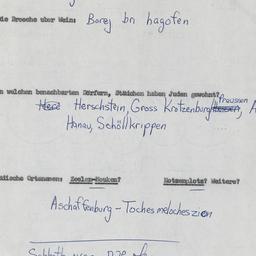 die Broeche uber Wein: Borej bn hagofen
n welchen benachbarten Dörfern, Städchen haben Juden gewohnt? Preussen
Herschstein, Gross Krotzenburg, A
Hanau, Schöllkrippen
üdische Ortsnamen: Zoelem-Mouken? Hotzenplotz? Weitere?
Aschaffenburg - Toches melocheszion